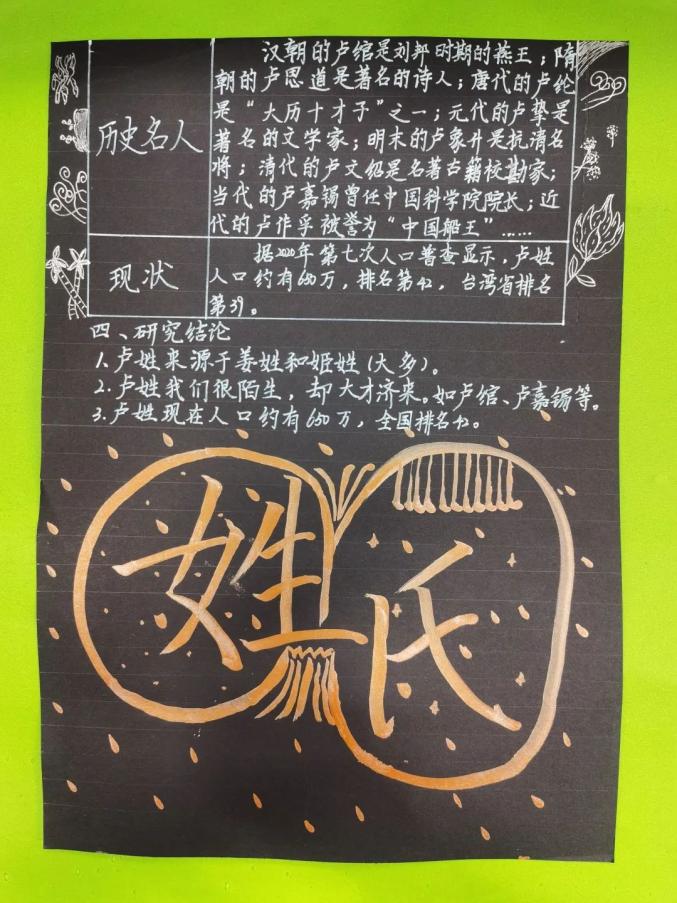 历史名人
汉朝的卢绾是刘邦时期的燕王；隋
朝的卢思道是著名的诗人；唐代的卢纶
是“大历十才子”之一；元代的卢挚是
著名的文学家；明末的卢象升是抗清名
将；清代的卢文弨是名著古籍校勘家；
当代的卢嘉锡曾任中国科学院院长；近
代的卢作孚被誉为“中国船王”……
现状
据2020年第七次人口普查显示，卢姓
人口约有650万，排名第42，台湾省排名
第39。
四、研究结论
1.卢姓来源于姜姓和姬姓(大多)。
2.卢姓我们很陌生，却大才济来。如卢绾、卢嘉锡等。
3.卢姓现在人口约有650万，全国排名42。
姓氏